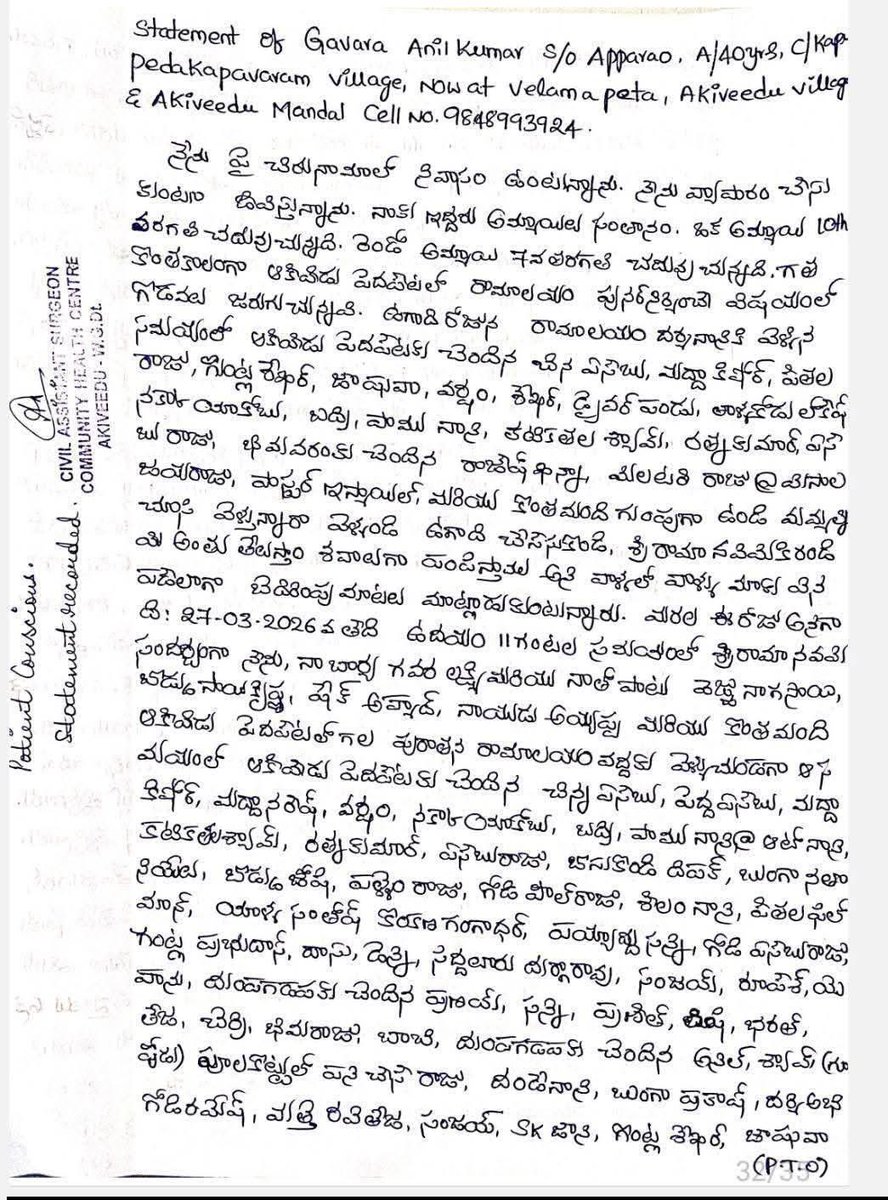 Statement of Gavara Anil Kumar S/o Apparao, A/40yrs, C/Kap-
pedakapavaram village, Now at Velama peta, Akiveedu villag
& Akiveedu Mandal Cell No. 9848993924.
నేను పై చిరునామాలో నివాసం ఉంటున్నాను. నేను వ్యాపారం చేసు
కుంటూ జీవిస్తున్నాను. నాకు ఇద్దరు అమ్మాయిలు సంతానం. ఒక అమ్మాయి 10th
తరగతి చదువు చున్నది. రెండో అమ్మాయి 7వ తరగతి చదువు చున్నది. గత
కొంతకాలంగా ఆకివీడు పెదపేటలో రామాలయం పునర్నిర్మించే విషయంలో
గొడవలు జరుగు చున్నవి. ఉగాది రోజున రామాలయం దర్శనానికి వెళ్ళిన
సమయంలో ఆకివీడు పెదపేటకు చెందిన చిన ఏసేబు, మద్దా కిషోర్, పీతల
రాజు, గుంట్ల శేఖర్, జాషువా, వర్షం, శేఖర్, డ్రైవర్ పండు, తాళ్ళకోడు లోకేష్
నకాళ యాకోబు, బద్రి, పాము నాని, కటికతల శ్యామ్, రత్న కుమార్, ఏసే
బు రాజు, భీమవరంకు చెందిన రాజేష్ ఖన్నా, మిలటరి రాజు @ మీసాల
జయరాజు, పాస్టర్ ఇస్మాయిల్, మరియు కొంతమంది గుంపుగా ఉండి మమ్మల్ని
చూసి వెళ్తున్నారా వెళ్ళండి ఉగాది చేసేసుకోండి, శ్రీరామ నవమికి రండి
మీ అంతు తేలుస్తాం శవాలుగా పంపిస్తాము అని వాళ్ళలో వాళ్ళు మాకు విన
పడేలాగా బెదిరింపు మాటలు మాట్లాడుకుంటున్నారు. మరల ఈరోజు అనగా
ది: 27-03-2026వ తేది ఉదయం 11గంటల సమయంలో శ్రీరామ నవమి
సందర్భంగా నేను, నా భార్య గవర లక్ష్మి మరియు నాతో పాటు వెజ్జు నాగసాయి,
బొడ్డు సాయికృష్ణ, షేక్ అహ్మద్, నాయుడు అయ్యప్ప మరియు కొంతమంది
ఆకివీడు పెదపేటలో గల పురాతన రామాలయం వద్దకు వెళ్ళుచుండగా ఆ స
మయంలో ఆకివీడు పెదపేటకు చెందిన చిన్న ఏసేబు, పెద్ద ఏసేబు, మద్దా
కిషోర్, మద్దా నరేష్, వర్షం, నకాళ యాకోబు, బద్రి, పాము నాని @ ఆటో నాని,
కటికతల శ్యామ్, రత్న కుమార్, ఏసేబురాజు, బాసుకొండి దీపక్, బుంగా నతా
నియేలు, బొడ్డు జోషి, పళ్ళెం రాజు, గోడి పాల్ రాజు, శీలం నాని, పీతల ఫిలో
మాన్, యాళ్ళ సంతోష్ కొయణ గంగాధర్, పయ్యాబ్ది సన్ని, గోడి ఏసేబురాజు,
గంట్ల ప్రభుదాస్, దాసు, డెన్ని, సిద్దలూరు దుర్గారావు, సంజయ్, రూపేశ్, యె
పాను, దుంపగడపకు చెందిన ప్రణయ్, సన్ని, ప్రణీత్, రిషి, భరత్,
తేజ, చెర్రి, భీమరాజు, బాబి, దుంపగడపకు చెందిన అనిల్, శ్యామ్ (గూ
షోడు) పూలకొట్టులో పని చేసే రాజు, దండే నాని, బుంగా ప్రకాష్, దర్శి అభి
గోడి రమేష్, మత్తి రవితేజ, సంజయ్, SK జాని, గుంట్ల శేఖర్, జాషువా
(P.T.O)
32/35
Patient Conscious.
Statement recorded.
CIVIL ASSISTANT SURGEON
COMMUNITY HEALTH CENTRE
AKIVEEDU - W.G.Dt.